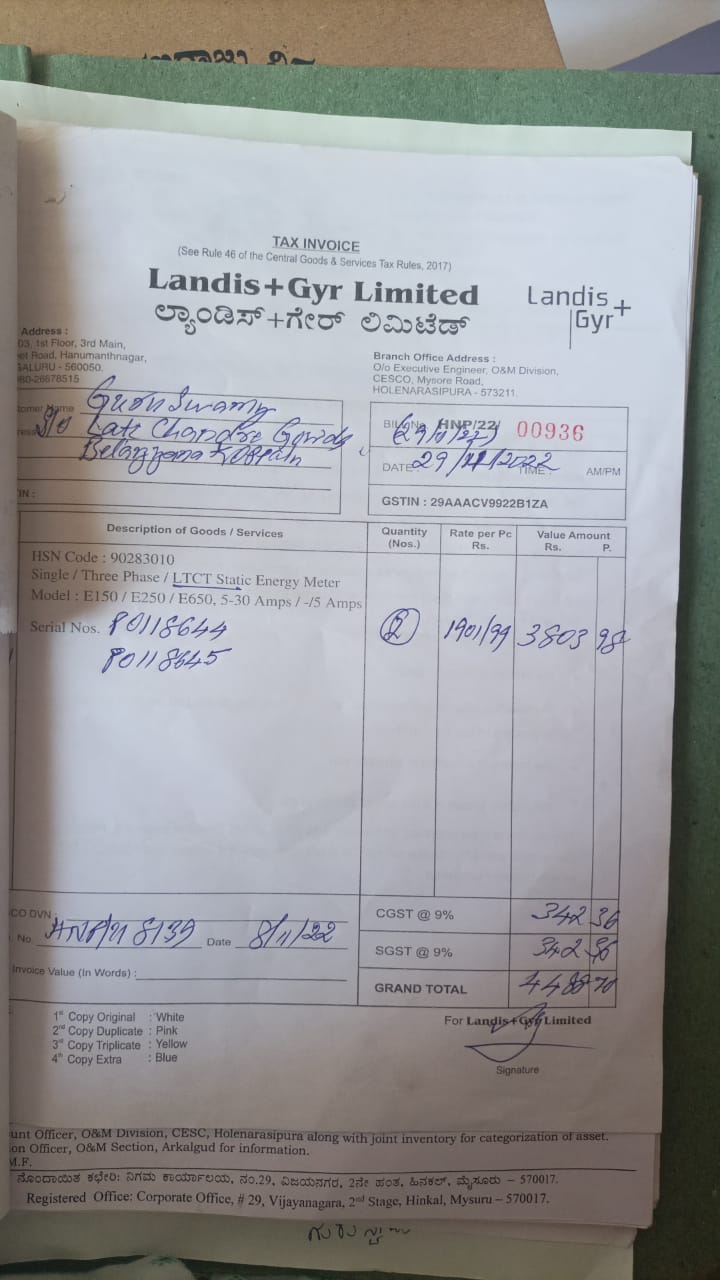 TAX INVOICE
(See Rule 46 of the Central Goods & Services Tax Rules, 2017)
Landis+Gyr Limited
ಲ್ಯಾಂಡಿಸ್+ಗೇರ್ ಲಿಮಿಟೆಡ್
Landis+
Gyr
Address :
03, 1st Floor, 3rd Main,
Road, Hanumanthnagar,
GALURU - 560050.
080-26678515
Branch Office Address :
O/o Executive Engineer, O&M Division,
CESCO, Mysore Road,
HOLENARASIPURA - 573211.
Name Guru Swamy
S/o Late Chandre Gowda
BILL No. HNP/22/ 00936
DATE : 29/11/2022 TIME : AM/PM
GSTIN : 29AAACV9922B1ZA
Description of Goods / Services
Quantity (Nos.)
Rate per Pc Rs.
Value Amount Rs. P.
HSN Code : 90283010
Single / Three Phase / LTCT Static Energy Meter
Model : E150 / E250 / E650, 5-30 Amps / -/5 Amps
Serial Nos. P0118644 2 1901/99 3803 98
P0118645
CO DVN
No. HNP/21 8139 Date 8/11/22
Invoice Value (In Words) :
CGST @ 9% 342 36
SGST @ 9% 342 36
GRAND TOTAL 4488 70
1st Copy Original : White
2nd Copy Duplicate : Pink
3rd Copy Triplicate : Yellow
4th Copy Extra : Blue
For Landis+Gyr Limited
Signature
unt Officer, O&M Division, CESC, Holenarasipura along with joint inventory for categorization of asset.
on Officer, O&M Section, Arkalgud for information.
M.F.
ನೊಂದಾಯಿತ ಕಛೇರಿ: ನಿಗಮ ಕಾರ್ಯಾಲಯ, ನಂ.29, ವಿಜಯನಗರ, 2ನೇ ಹಂತ, ಹಿನಕಲ್, ಮೈಸೂರು – 570017.
Registered Office: Corporate Office, # 29, Vijayanagara, 2nd Stage, Hinkal, Mysuru – 570017.